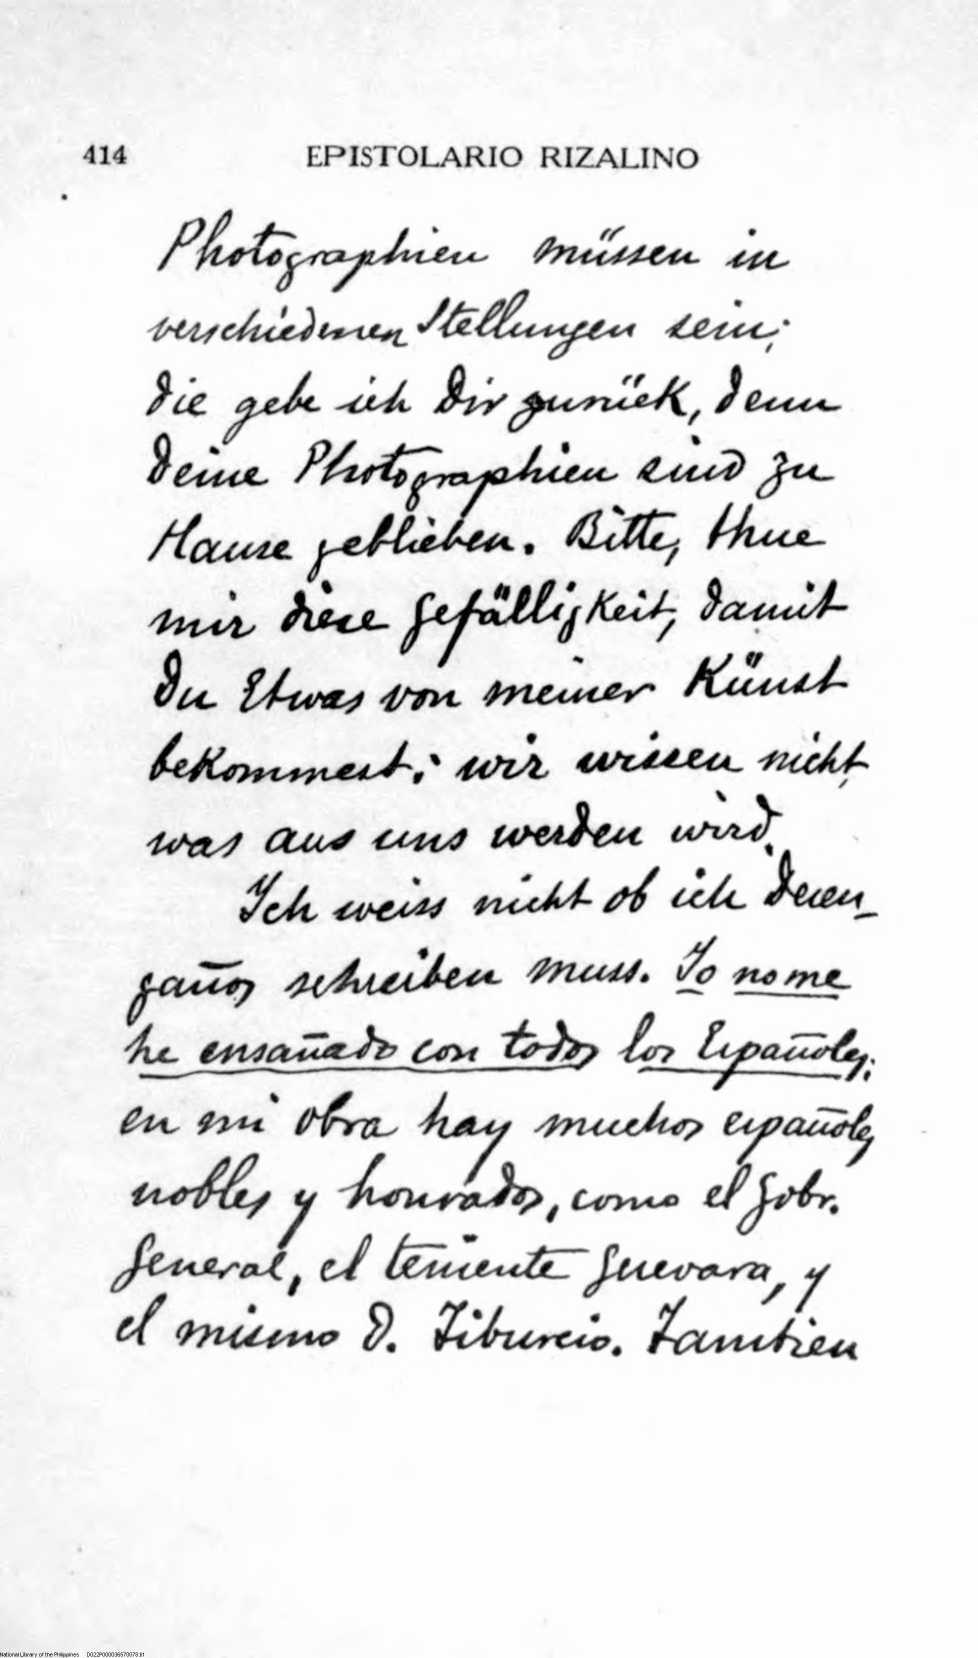 414 EPISTOLARIO RIZALINO
Photographien müssen in
verschiedenen Stellungen sein;
die gebe ich Dir zurück, denn
deine Photographien sind zu
Hause geblieben. Bitte, thue
mir diese Gefälligkeit, damit
Du Etwas von meiner Künst
bekommest; wir wissen nicht,
was aus uns werden wird.
Ich weiss nicht ob ich Desen-
gaños schreiben muss. Yo no me
he ensañado con todos los Españoles;
en mi obra hay muchos españoles
nobles y honrados, como el Gobr.
General, el teniente Guevara, y
el mismo D. Tiburcio. Tambien
National Library of the Philippines